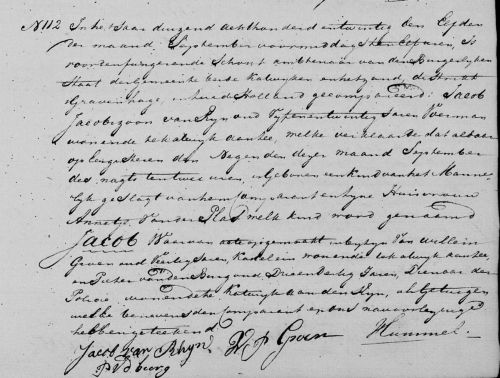 N 112 In het Jaar duizend achthonderd en twintig den Elfden
der maand September voormiddag ten Elf uren, is
voor den fungerende Schout ambtenaar van den Burgerlyken
Staat der gemeente beide Katwyken en het zand, de
Gravenhage, en huid Holland gecompareerd: Jacob
Jacobszoon van Ryn oud Jaren Veerman
wonende te Katwyk aan zee, welke verklaarde dat aldaar
op den Negenden dezer maand September
des nagts ten twee uren, is geboren een kind van het Manne-
lyk geslagt van hem Comparant en zyne Huisvrouw
Annetje Van der Plas welk kind word genaamd
Jacob Waarvan acte opgemaakt in byzyn Van Willem
Green oud Jaren wonende te Katwyk aan zee,
en Pieter van den Berg oud Drie en dertig Jaren, Dienaar der
Policie wonende te Katwyk aan den Ryn, als getuigen
welke benevens den Comparant en ons na voorlezinge
hebben geteekend
Jacob van Rhyn W P Green Hummel
P V D berg